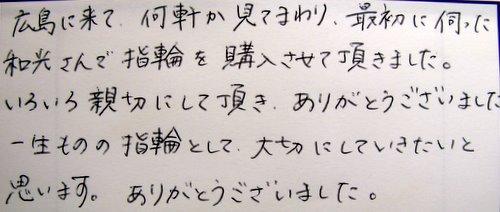 広島に来て、何軒か見てまわり、最初に伺った
和光さんで指輪を購入させて頂きました。
いろいろ親切にして頂き、ありがとうございました
一生ものの指輪として、大切にしていきたいと
思います。ありがとうございました。